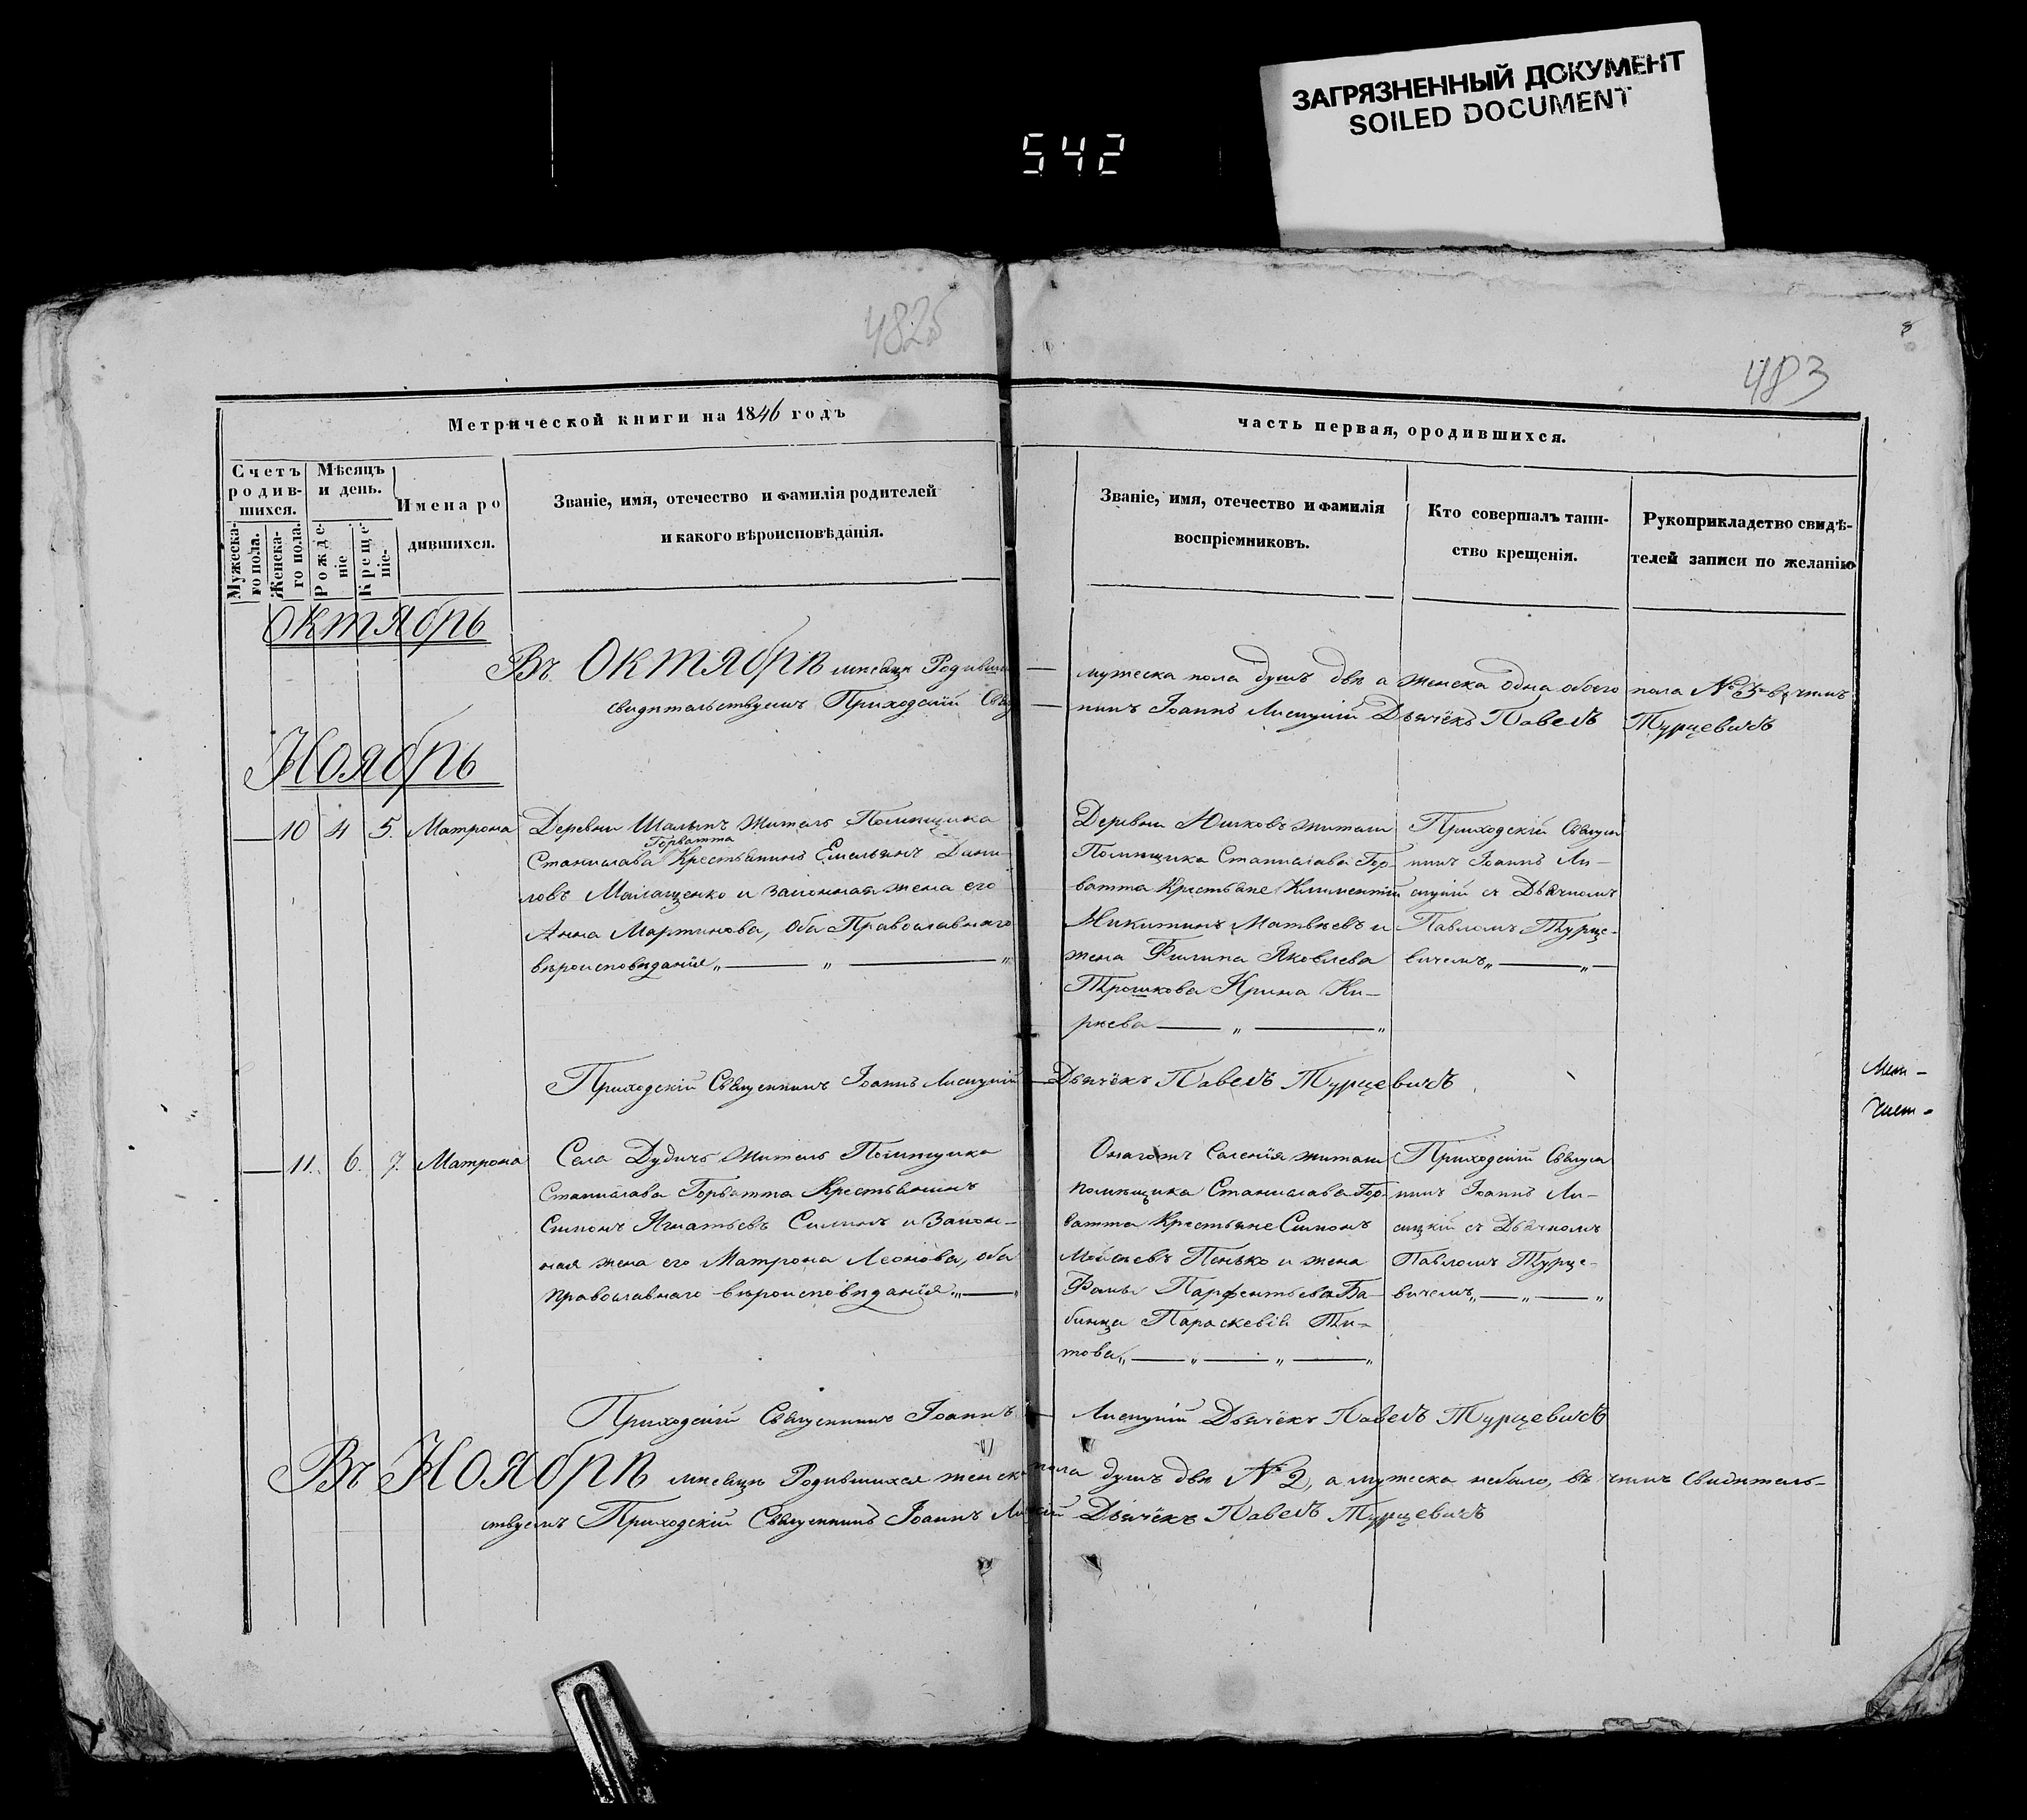 ЗАГРЯЗНЕННЫЙ ДОКУМЕНТ
SOILED DOCUMENT
542
482об
483
Метрической книги на 1846 годъ
часть первая, ородившихся.
Счетъ родив-шихся.
Мѣсяцъ и день.
Мужеска-го пола.
Женска-го пола.
Рожде-ніе
Креще-ніе.
Имена ро
дившихся.
Званіе, имя, отечество и фамилія родителей
и какого вѣроисповѣданія.
Званіе, имя, отечество и фамилія
воспріемниковъ.
Кто совершалъ таин-
ство крещенія.
Рукоприкладство свидѣ-
телей записи по желанію
Октябрь
Въ Октябрѣ мѣсяцѣ Родивши — мужеска пола душъ двѣ а женска одна обоего пола № 3 въ чемъ
свидѣтельствуемъ Приходскій Свящ — никъ Іоаннъ Лисицкій Дьячёкъ Павелъ Турцевичъ
Ноябрь
— 10 4 5. Матрона
Деревни Шалыпъ житель Помѣщика
Горватта
Станислава Крестьянинъ Емельянъ Дани-
ловъ Малащенко и законная жена его
Анна Мартинова, оба Православнаго
вѣроисповѣданія „ — „ — „
Деревни Юшковъ жители
Помѣщика Станислава Гор-
ватта Крестьяне Климентій
Никитинъ Матвѣевъ и
жена Филипа Яковлева
Трошкова Ирина Ки-
рѣева — „ — „
Приходскій Священ
никъ Іоаннъ Ли-
сицкій съ Дьячкомъ
Павломъ Турце-
вичемъ „ — „ —
Приходскій Священникъ Іоаннъ Лисицкій — Дьячёкъ Павелъ Турцевичъ
— 11. 6. 7. Матрона
Села Дудичъ житель Помѣщика
Станислава Горватта Крестьянинъ
Симонъ Игнатьевъ Силинъ и Закон-
ная жена его Матрона Леонова, оба
православнаго вѣроисповѣданія „ — „
Онагожъ Селенія жители
помѣщика Станислава Гор-
ватта Крестьяне Симонъ
Мойсѣевъ Пенько и жена
Фомы Парфентьева Ба-
бинца Параскевія Ти-
това „ — „ — „ — „
Приходскій Священ
никъ Іоаннъ Ли-
сицкій съ Дьячкомъ
Павломъ Турце-
вичемъ „ — „ — „
Приходскій Священникъ Іоаннъ — Лисицкій Дьячёкъ Павелъ Турцевичъ
Въ Ноябрѣ мѣсяцѣ Родившихся женска пола душъ двѣ № 2, а мужеска небыло, въ чемъ свидѣтель-
ствуемъ Приходскій Священникъ Іоаннъ Дьячёкъ Павелъ Турцевичъ